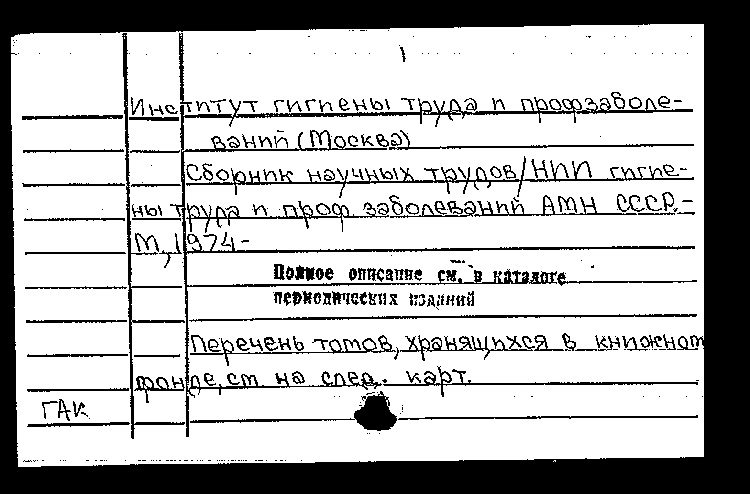 1
Институт гигиены труда и профзаболе-
ваний (Москва)
Сборник научных трудов/НИИ гигие-
ны труда и проф. заболеваний АМН СССР.-
М., 1974-
Полное описание см. в каталоге
периодических изданий
Перечень томов, хранящихся в книжном
фонде, см на след. карт.
ГАК